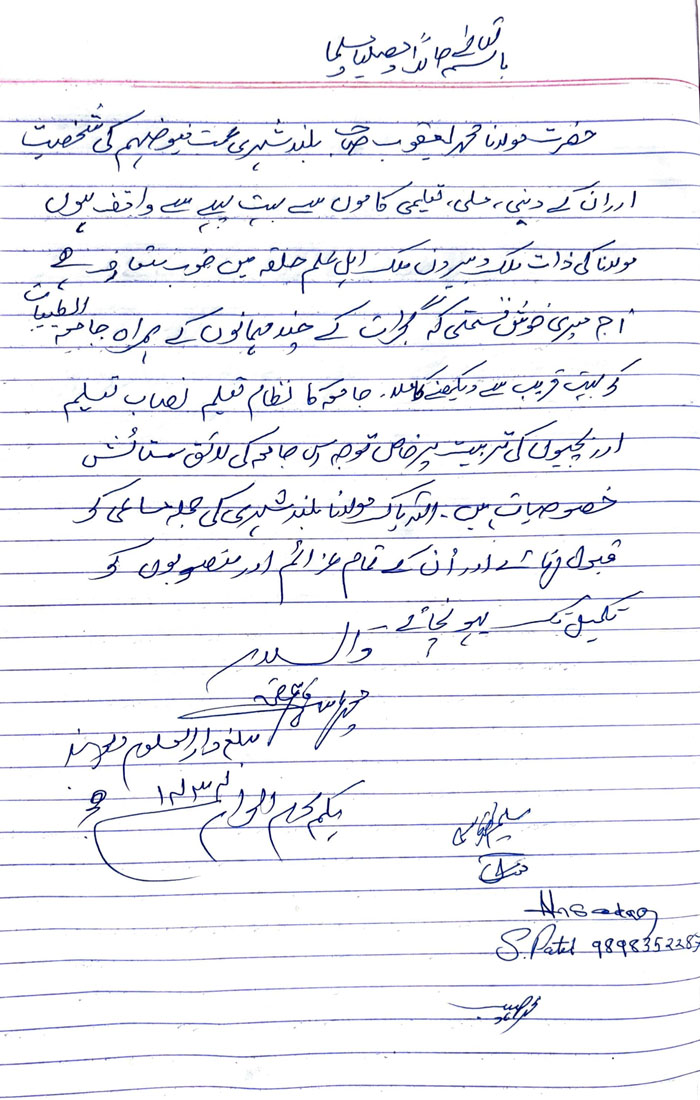 باسمہ تعالیٰ حامداً و مصلیا و مسلما
حضرت مولانا محمد یعقوب صاحب بلند شہری عمت فیوضہم کی شخصیت
اور ان کے دینی، ملی، تعلیمی کاموں سے بہت پہلے سے واقف ہوں
مولانا کی ذات ملک و بیرون ملک اہل علم حلقہ میں خوب متعارف ہے
آج میری خوش قسمتی کہ گجرات کے چند مہمانوں کے ہمراہ جامعۃ الطیبات
کو بہت قریب سے دیکھنے کا ملا۔ جامعہ کا نظام تعلیم نصاب تعلیم
اور بچیوں کی تربیت پر خاص توجہ اس جامعہ کی لائق ستائش
خصوصیات ہیں۔ اللہ پاک مولانا بلند شہری کی جملہ مساعی کو
قبول فرمائے اور اُن کے تمام عزائم اور منصوبوں کو
تکمیل تک پہونچائے
والسلام
مبلغ دارالعلوم دیوبند
یکم محرم الحرام
S. Patel 9898352287